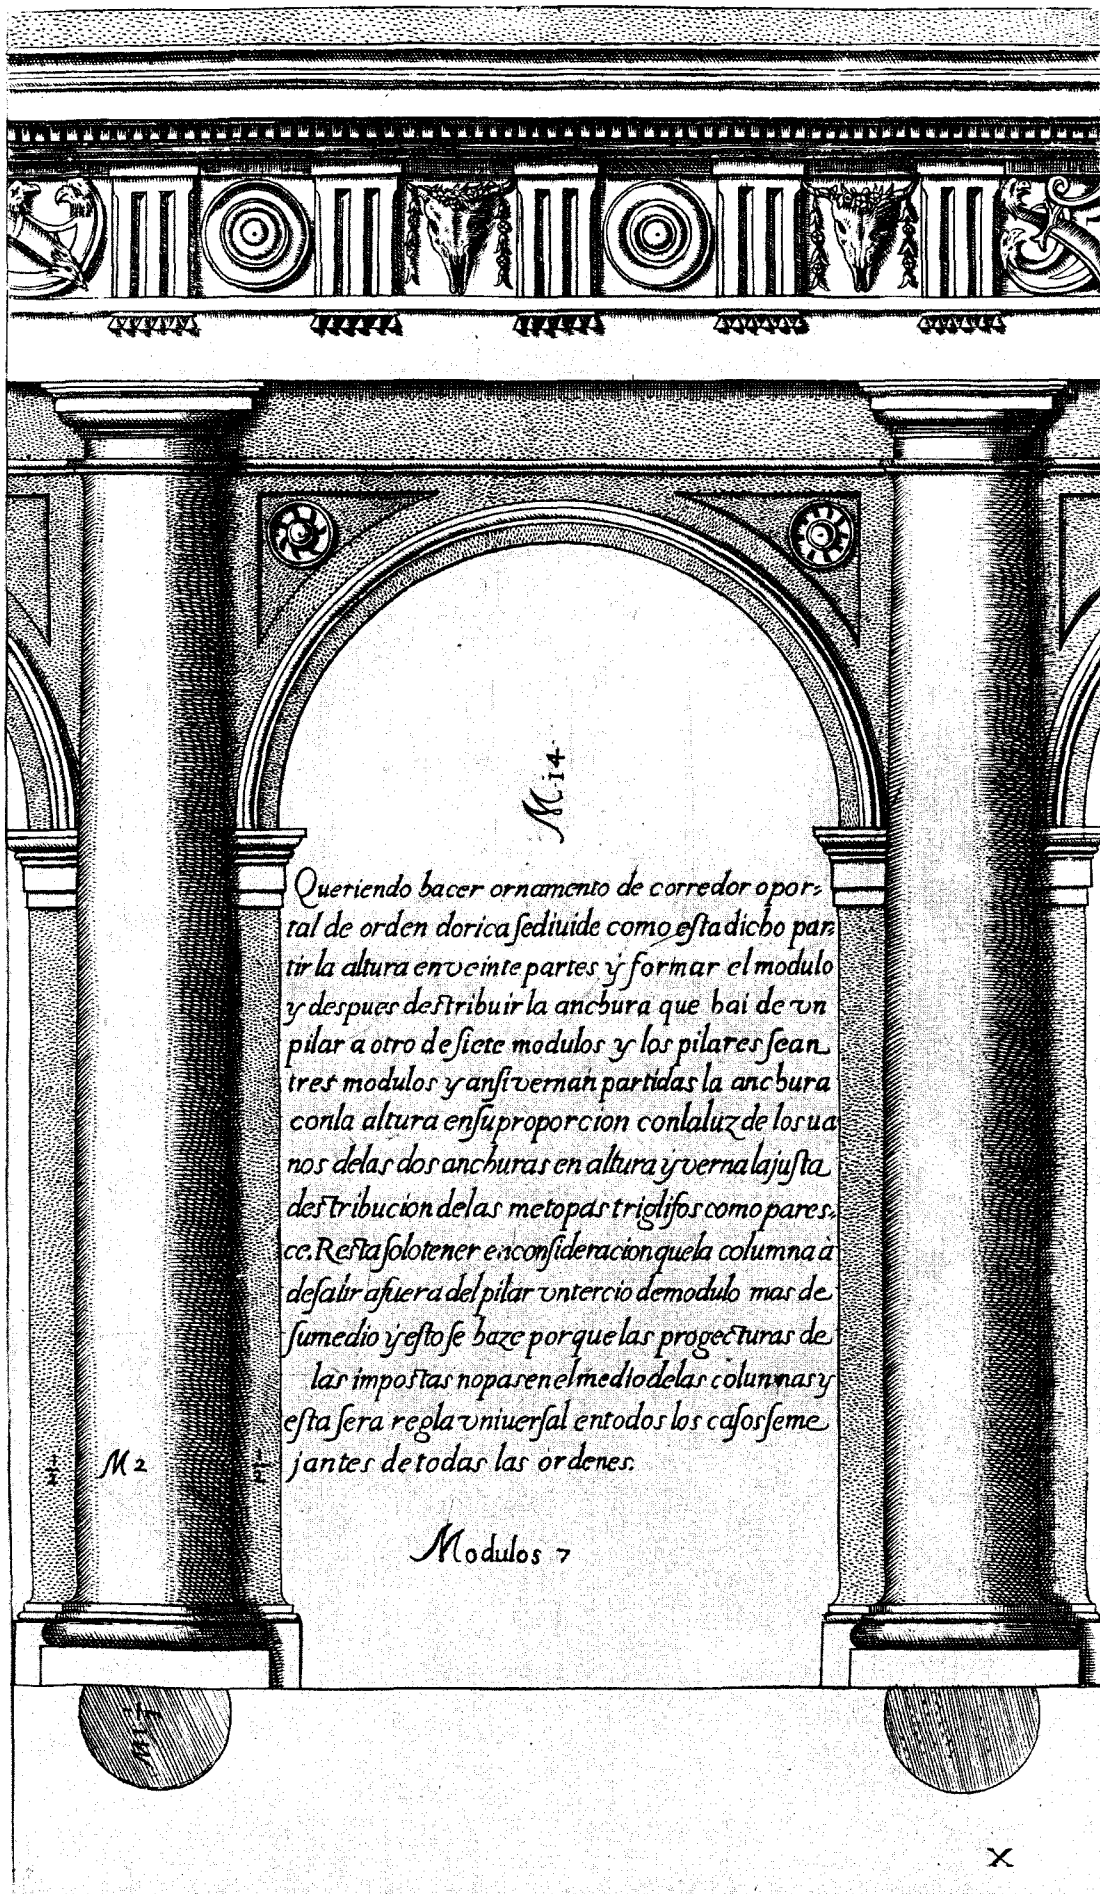 M 14
Queriendo hacer ornamento de corredor o por-
tal de orden dorica se diuide como esta dicho par-
tir la altura en veinte partes y formar el modulo
y despues destribuir la anchura que hai de vn
pilar a otro de siete modulos y los pilares sean
tres modulos y ansi vernan partidas la anchura
con la altura en su proporcion con la luz de los ua
nos de las dos anchuras en altura y verna la justa
destribucion de las metopas triglifos como pares-
ce. Resta solo tener en consideracion que la columna à
de salir afuera del pilar vn tercio de modulo mas de
su medio y esto se haze por que las progecturas de
las impostas no pasen el medio de las colunnas y
esta sera regla vniuersal en todos los casos seme
jantes de todas las ordenes.
1/2 M 2 1/2
Modulos 7
M 1 1/3
X